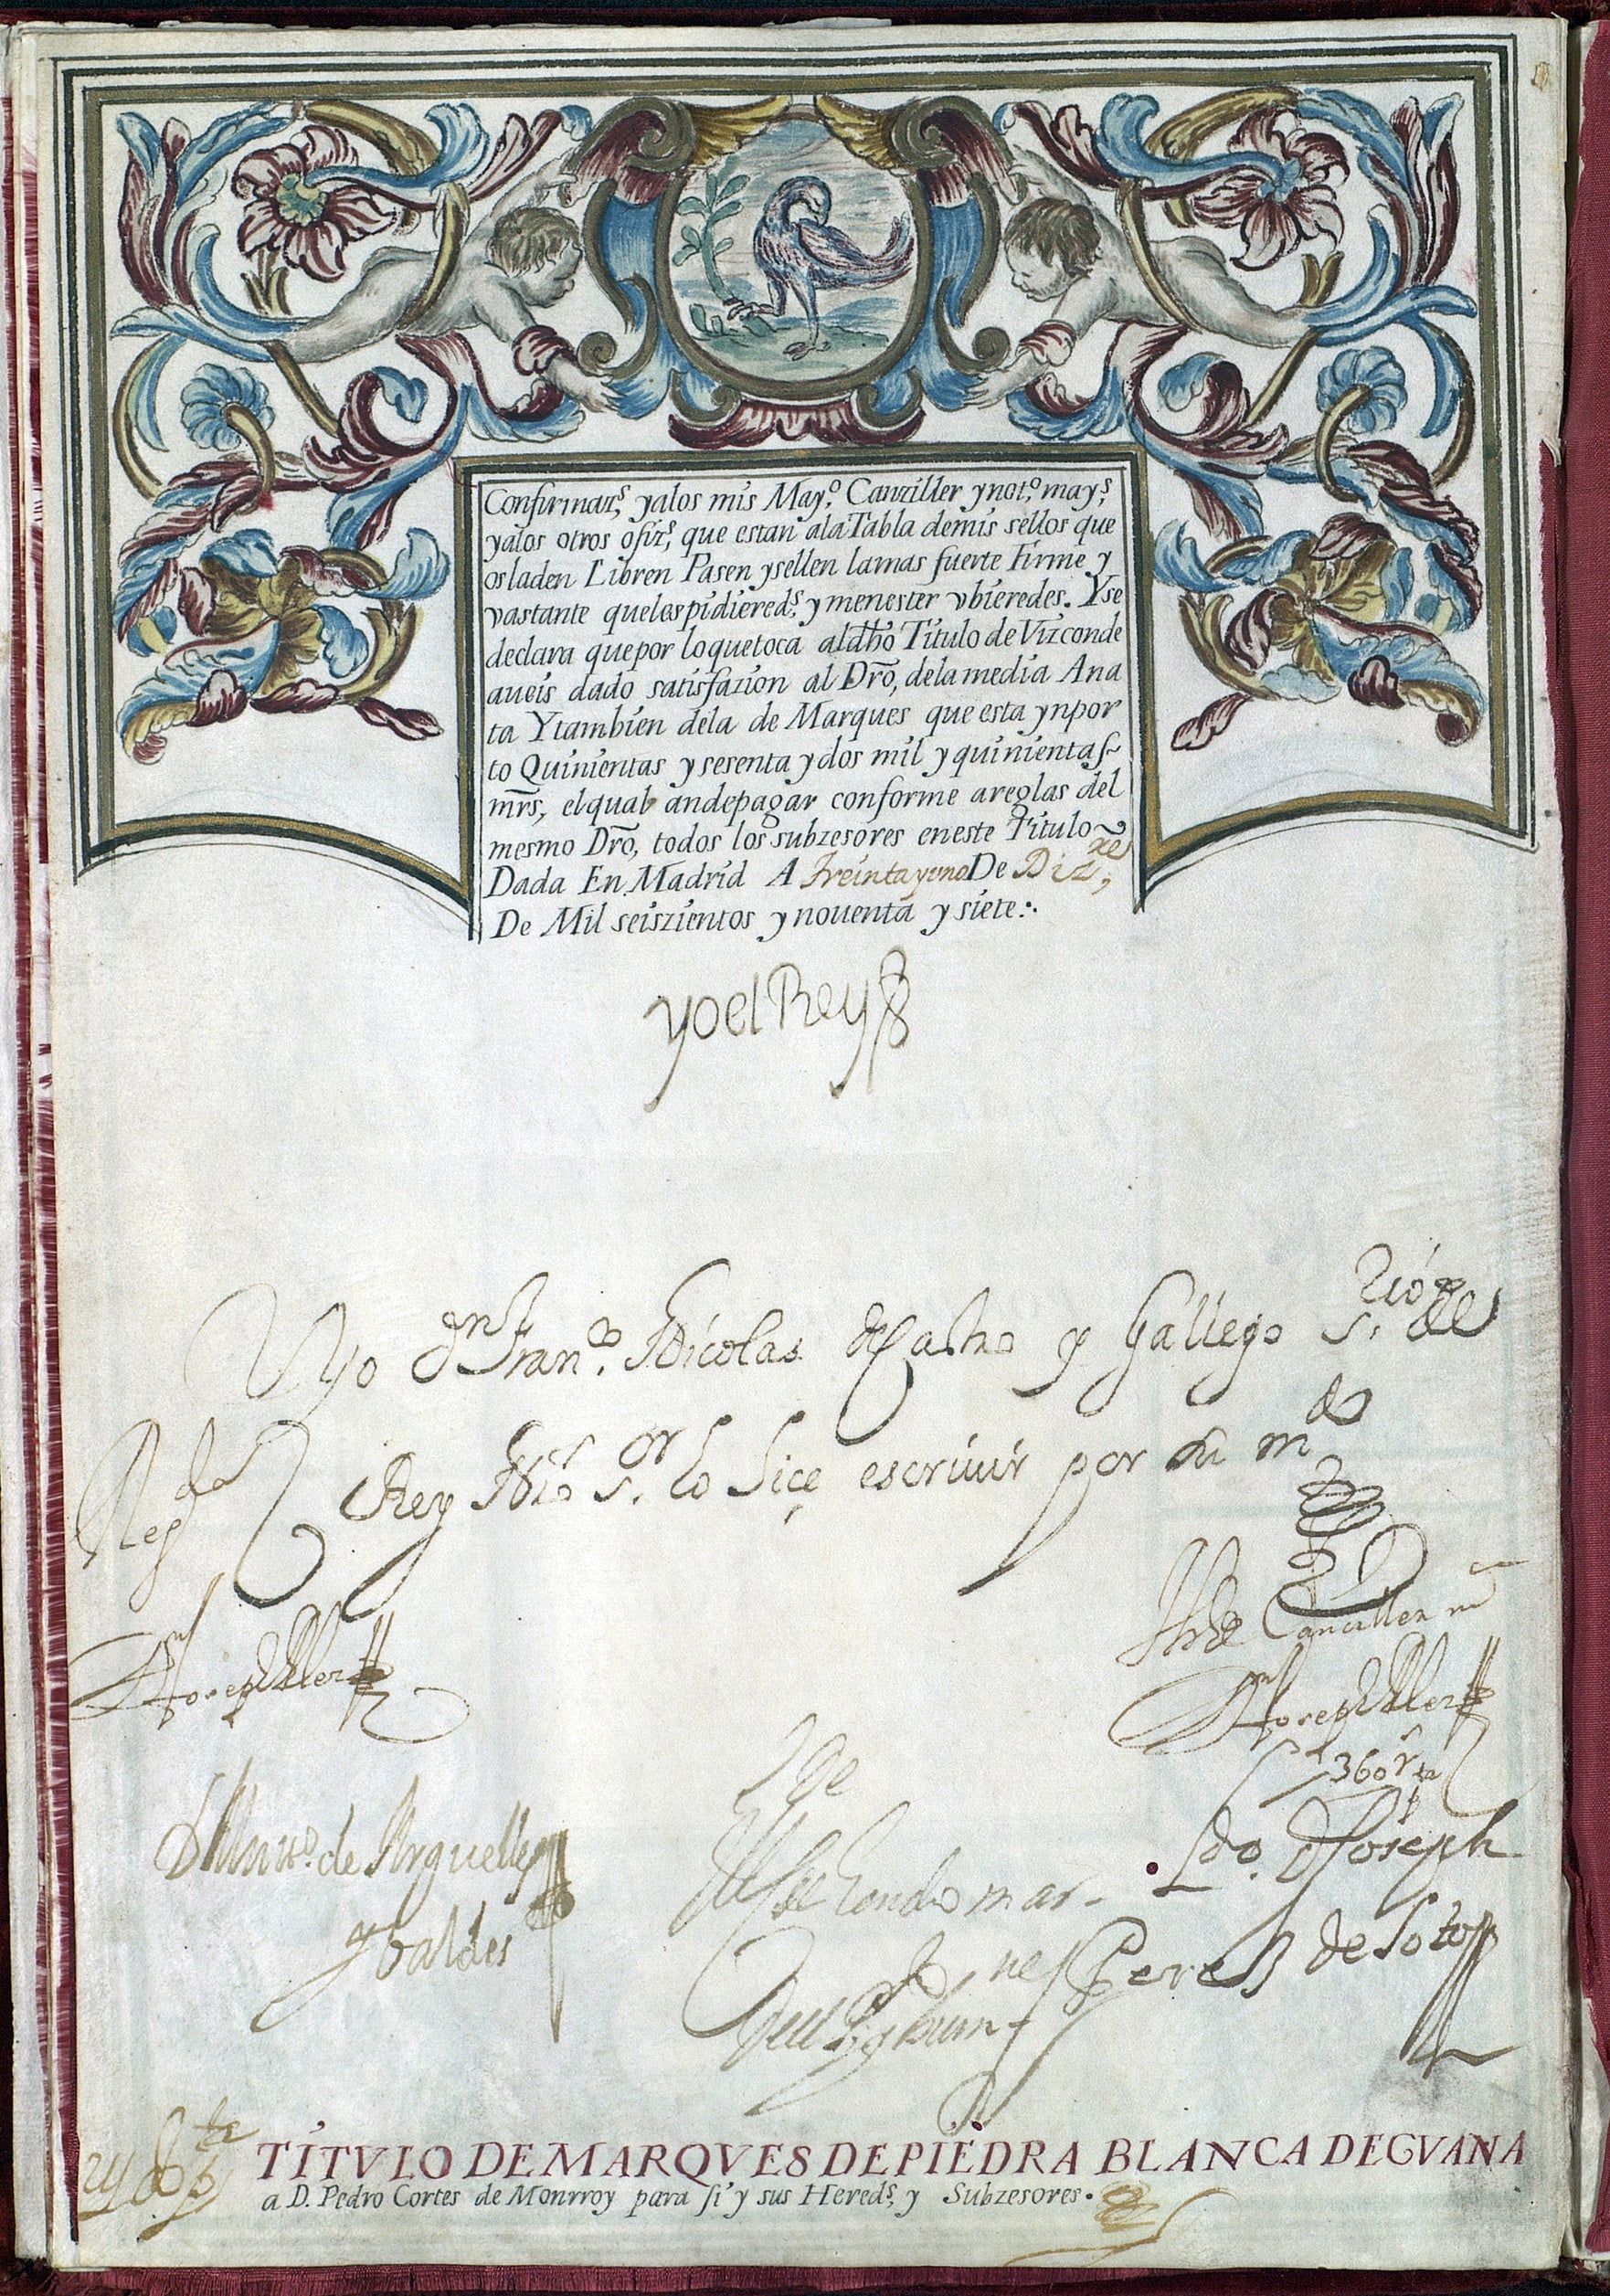 Confirmazs, yalos mis Mayo. Canziller ynoto. mays,
yalos otros ofizs, que estan ala Tabla demis sellos que
osladen Libren Pasen ysellen lamas fuerte Firme y
vastante quelespidiereds, y menester vbieredes. Yse
declara quepor loquetoca aldho Titulo de Vizconde
aueis dado satisfazion al Dro, dela media Ana
ta Y tambien dela de Marques que esta ynpor
to Quinientas y sesenta y dos mil y quinientas
mrs, elqual andepagar conforme areglas del
mesmo Dro, todos los subzesores eneste Titulo
Dada En Madrid A Treintayuno De Dizre,
De Mil seiszientos y nouenta y siete:.
yo el Rey
Yo Dn Franco. Nicolas de Castro y Gallego s.rio del
Rey Nro s.or lo hiçe escriuir por su mdo
Regda
Dn Joseph Velez
The Canciller mr
Dn Joseph Velez
360 rs
D Anto. de Arguelles
y Valdes
Ldo. D Joseph
Perez de Soto
TÍTVLO DE MARQVES DE PIEDRA BLANCA DE GVANA
a D. Pedro Cortes de Monrroy para si y sus Hereds, y Subzesores.